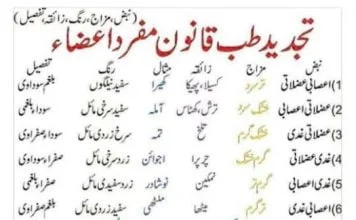 (نبض، مزاج، رنگ، زائقہ، تفصیل)
تجدید طب قانون مفرد اعضاء
نبض مزاج زائقہ مثال رنگ تفصیل
1) اعصابی عضلاتی تر سرد کسیلا، پھیکا کھیرا سفید نیلگوں بلغم سوداوی
2) عضلاتی اعصابی خشک سرد ترش، کھٹاس آملہ سفید سرخی مائل سودا بلغمی
3) عضلاتی غدی خشک گرم تلخ تمہ سرخ زردی مائل سودا صفراوی
4) غدی عضلاتی گرم خشک چرپرا اجوائن زرد سرخی مائل صفرا سوداوی
5) غدی اعصابی گرم تر نمکین نوشادر زرد سفیدی مائل صفرا بلغمی
6) اعصابی غدی تر گرم میٹھا ملٹھی سفید زردی مائل بلغم صفراوی